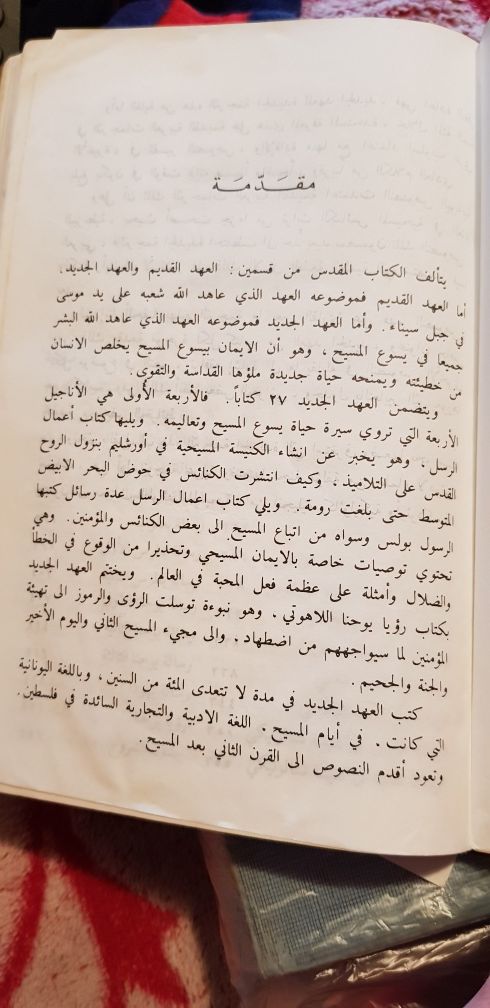 مقدّمة
يتألف الكتاب المقدس من قسمين : العهد القديم والعهد الجديد.
أما العهد القديم فموضوعه العهد الذي عاهد الله شعبه على يد موسى
في جبل سيناء. وأما العهد الجديد فموضوعه العهد الذي عاهد الله البشر
جميعا في يسوع المسيح ، وهو أن الايمان بيسوع المسيح يخلص الانسان
من خطيئته ويمنحه حياة جديدة ملؤها القداسة والتقوى.
ويتضمن العهد الجديد ٢٧ كتاباً. فالأربعة الأولى هي الأناجيل
الأربعة التي تروي سيرة حياة يسوع المسيح وتعاليمه. ويليها كتاب أعمال
الرسل ، وهو يخبر عن انشاء الكنيسة المسيحية في أورشليم بنزول الروح
القدس على التلاميذ ، وكيف انتشرت الكنائس في حوض البحر الابيض
المتوسط حتى بلغت رومة. ويلي كتاب اعمال الرسل عدة رسائل كتبها
الرسول بولس وسواه من اتباع المسيح الى بعض الكنائس والمؤمنين. وهي
تحتوي توصيات خاصة بالايمان المسيحي وتحذيرا من الوقوع في الخطأ
والضلال وأمثلة على عظمة فعل المحبة في العالم. ويختم العهد الجديد
بكتاب رؤيا يوحنا اللاهوتي ، وهو نبوءة توسلت الرؤى والرموز الى تهيئة
المؤمنين لما سيواجههم من اضطهاد ، والى مجيء المسيح الثاني واليوم الأخير
والجنة والجحيم .
كتب العهد الجديد في مدة لا تتعدى المئة من السنين ، وباللغة اليونانية
التي كانت ، في أيام المسيح ، اللغة الادبية والتجارية السائدة في فلسطين.
وتعود أقدم النصوص الى القرن الثاني بعد المسيح.